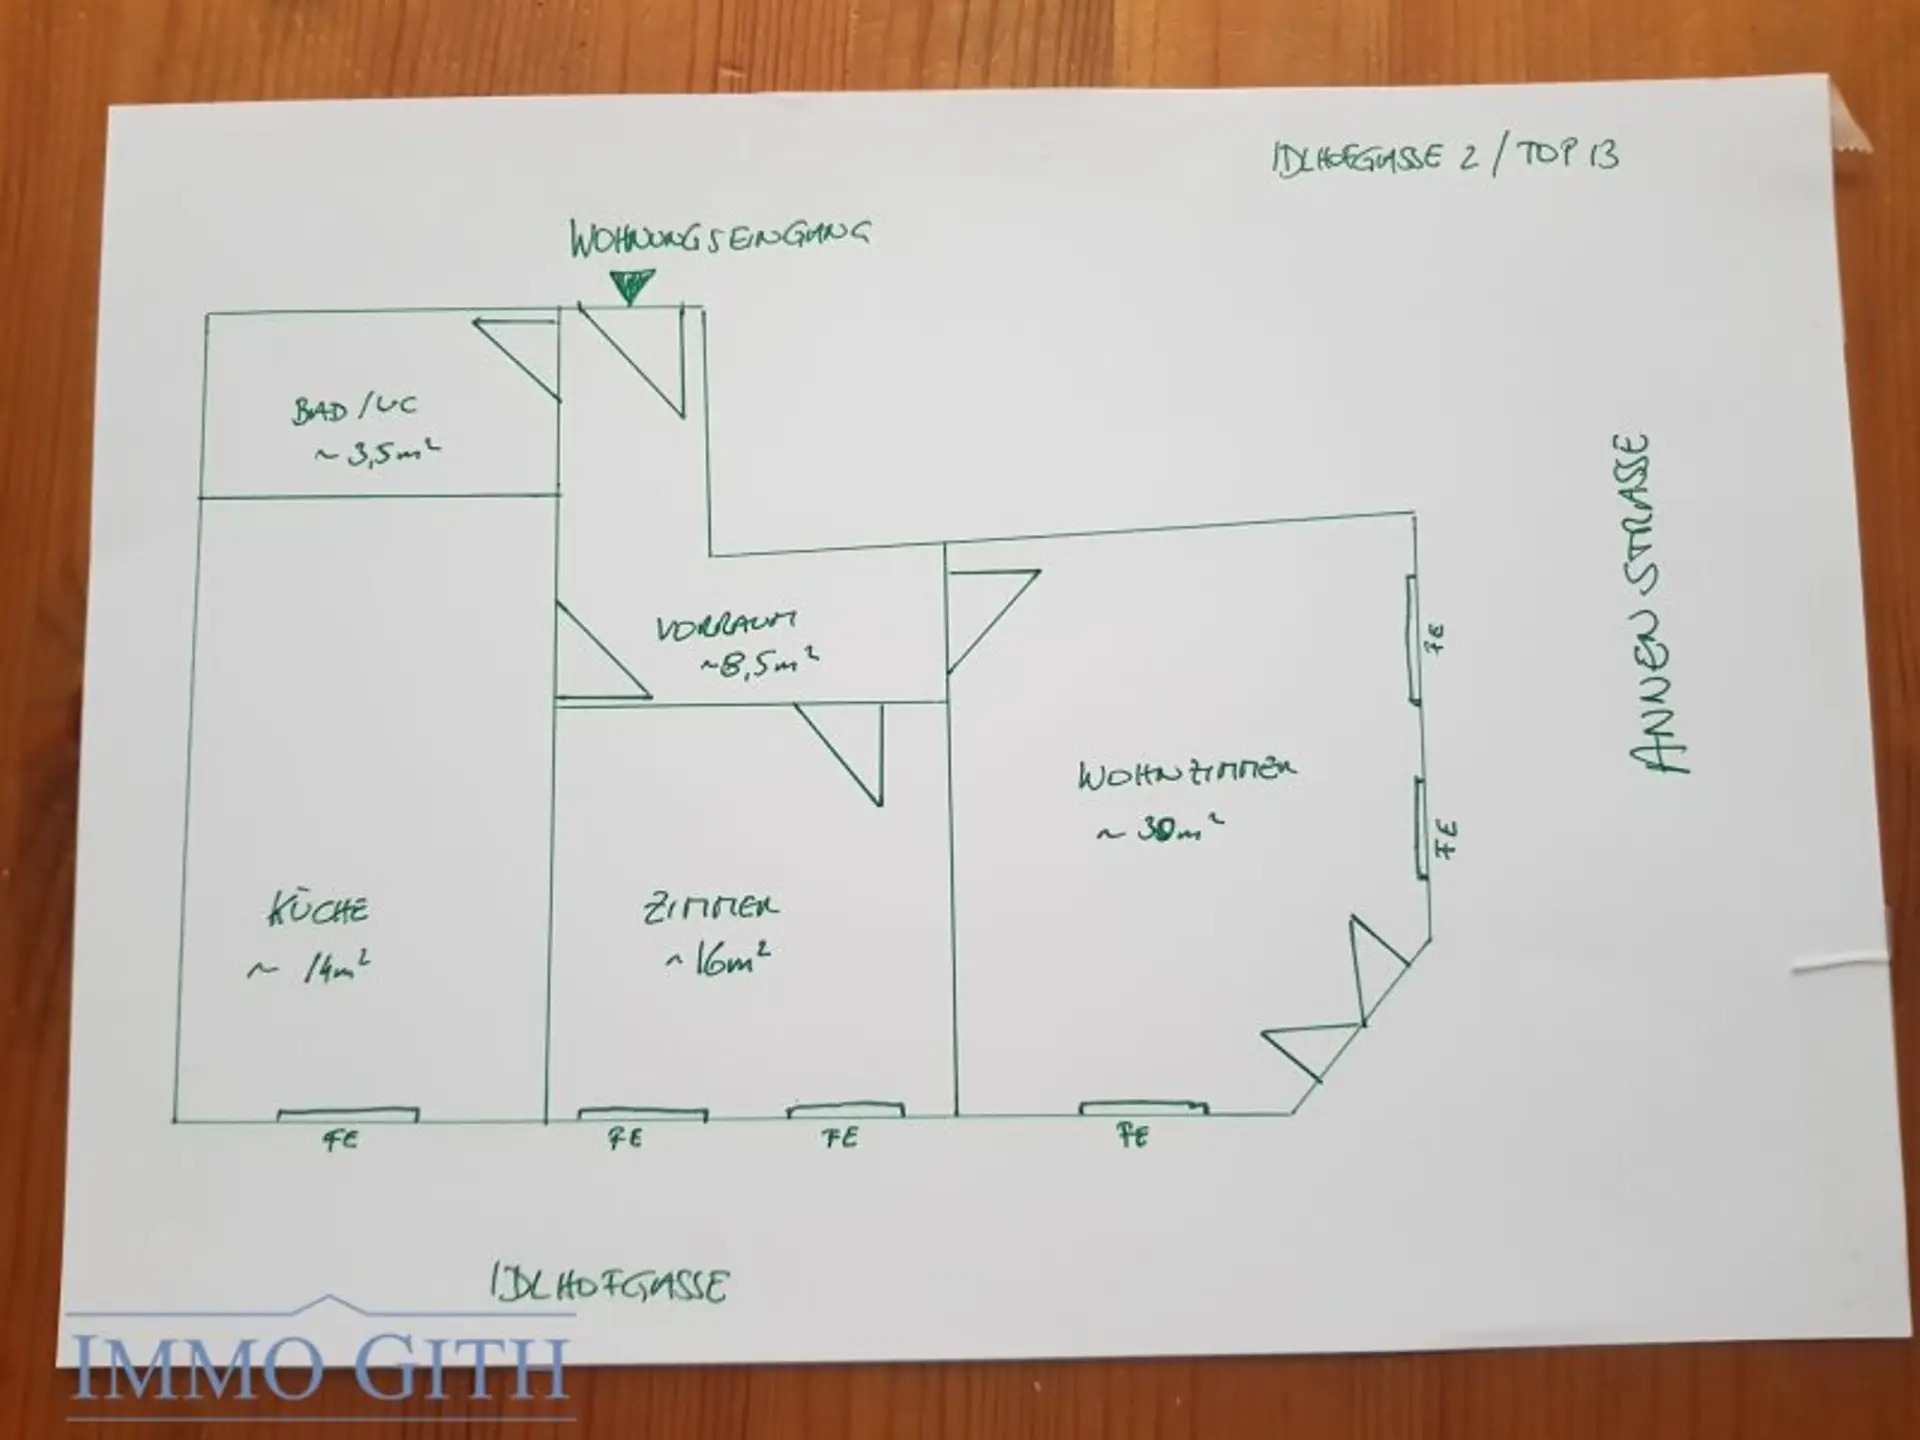 IDLHOFGASSE 2 / TOP 13
WOHNUNGSEINGANG
BAD/WC
~ 3,5m²
VORRAUM
~8,5m²
WOHNZIMMER
~ 30m²
KÜCHE
~ 14m²
ZIMMER
~16m²
FE
FE
FE
FE
FE
FE
ANNENSTRASSE
IDLHOFGASSE
IMMO GITH